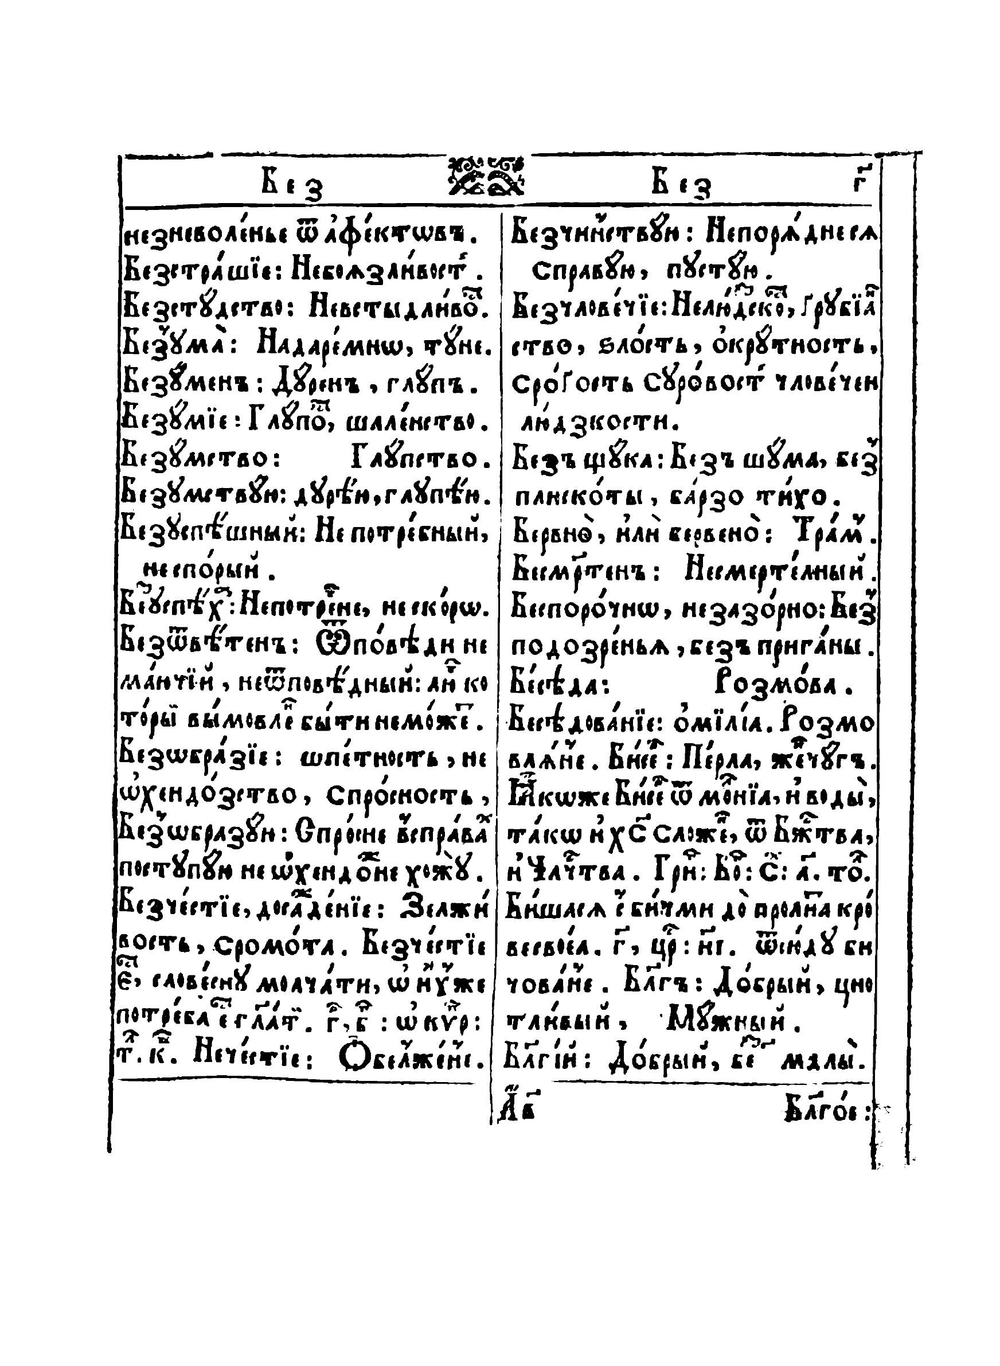 Без Без г҃
незневоле́нье ѿ афе́ктѡвъ.
Безстра́шїе: Небоязли́вост.
Безсту́дство: Невстыдли́вос.
Безꙋма̀: Надаре́мнѡ, тꙋ́не.
Безꙋ́менъ: Дꙋ́ренъ, глꙋпъ.
Безꙋ́мїе: Глꙋпо, шале́нство.
Безꙋмство: Глꙋпство.
Безꙋмствꙋю: дꙋрѣ́ю, глꙋпѣ́ю.
Безꙋспѣ́шный: Непотре́бный,
неспо́рый.
Безꙋспѣ́х: Непотре́бне, нескорѡ.
Безѿвѣ́тенъ: Ѿпо́вѣди не
ма́ючїй, неѿповѣ́дный: албо ко
то́рый вы́мовле бы́ти немо́же.
Безѡбра́зїе: шпе́тность, не
ѡхендо́зство, спро́сность,
Безѡбразꙋю: Спро́сне
постꙋпꙋю не ѡхендо́жне хожꙋ̀.
Безче́стїе, досажде́нїе: Зелжи́
вость, сромо́та. Безче́стїе
є҆́ст, слове́снꙋ молча́ти, ѡ нꙋже
потре́ба ест гл҃ати. г҃, в҃: ѡ кѵр:
т҃. к҃. Нече́стїе: Ѻбелже́нье.
Безчи́нствꙋю: Непоря́днеся
справꙋю, пꙋстꙋю.
Безчлове́чїе: Нелю́дскос, ґрꙋбїа
ство, ѕло́сть, ѻкрꙋ́тность,
сро́ґость сꙋро́вост члове́чен
лю́дзкости.
Безъ щꙋка: Безъ шꙋма, без
пльско́ты, ба́рзо ти́хо.
Бервно̀, и҆лѝ бервено̀: Тра́м.
Бесмр҃тенъ: Несмерте́лный.
Беспоро́чнѡ, незазо́рно: Без
подозре́нья, безъ прига́ны.
Бесѣ́да: Розмо́ва.
Бесѣ́дова́нїе: ѻмїлі́а. Розмо
вля́не. Би́сер: Пе́рла, же́мчꙋгъ.
Ꙗ҆́коже Би́сер ѿ мо́лнїа, и҆ воды̀,
та́кѡ и҆ Хс҃ сложе́н, ѿ Бж҃тва,
и҆ Чл҃чтва. Гри: Бо: С: а҃. то.
Би́шася є бичми до пролитїа кро́
ве своеѧ. г҃, цр: ні҃. ѿсю́дꙋ би
чова́нье. Бл҃гъ: До́брый, цно
тли́вый, Мꙋ́жный.
Бл҃гі́й: До́брый, без малы̀.
А҆в҃ Бл҃го́е: